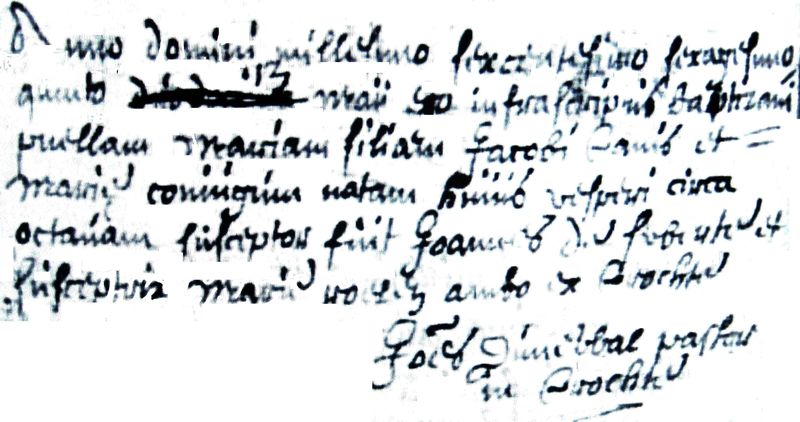 Anno domini millesimo sexcentesimo sexagesimo
quinto 13 maii ego infrascriptus baptizavi
puellam Mariam filiam Jacobi Danis et =
Mariæ coniugum natam huius vesperi circa
octavam susceptor fuit Joannes de et
susceptrix Marie ambo ex Drochte
Joês pastor
in Drochte